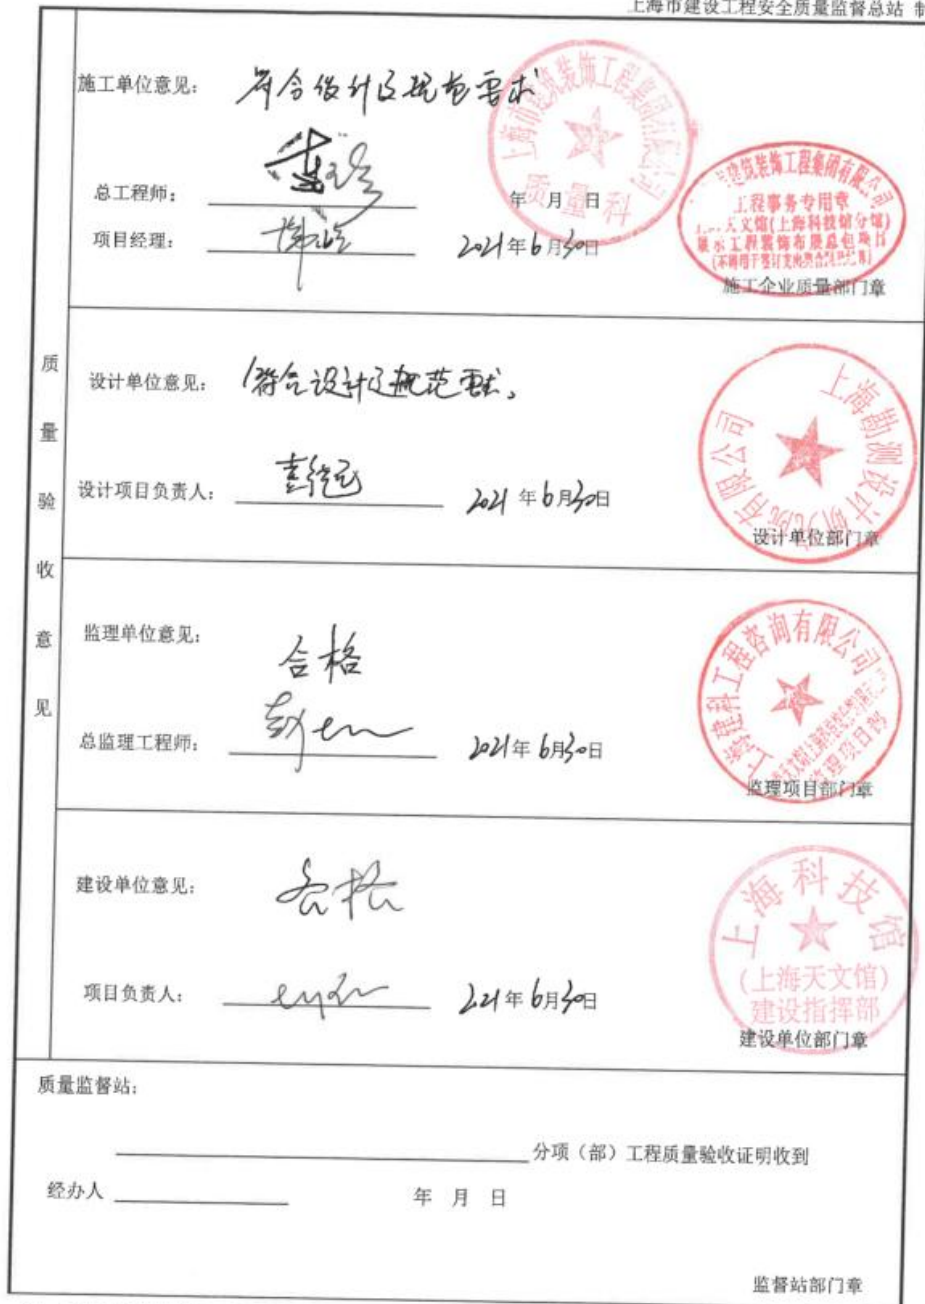 上海市建设工程安全质量监督总站 制
质量验收意见
施工单位意见: 符合设计及规范要求
总工程师:
年 月 日
项目经理:
2021年6月30日
上海市建筑装饰工程集团有限公司
质量科
建筑装饰工程集团有限公司
工程事务专用章
天文馆(上海科技馆分馆)
展示工程装饰布展总包项目
施工企业质量部门章
设计单位意见: 符合设计及规范要求。
设计项目负责人:
2021年6月30日
上海勘测设计研究院有限公司
设计单位部门章
监理单位意见:
合格
总监理工程师:
2021年6月30日
上海建科工程咨询有限公司
监理项目部
监理项目部门章
建设单位意见:
合格
项目负责人:
2021年6月30日
上海科技馆
(上海天文馆)
建设指挥部
建设单位部门章
质量监督站:
分项(部)工程质量验收证明收到
经办人
年 月 日
监督站部门章